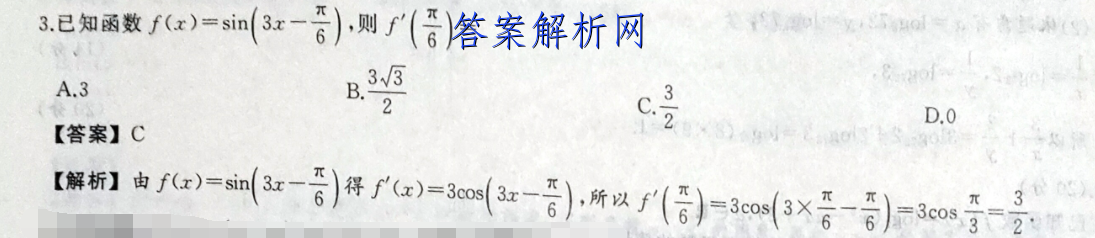 3.已知函数 f(x)=sin(3x-π/6),则 f′(π/6)答案解析网
A.3 B.3√3/2 C.3/2 D.0
【答案】C
【解析】由 f(x)=sin(3x-π/6)得 f′(x)=3cos(3x-π/6),所以 f′(π/6)=3cos(3×π/6-π/6)=3cos π/3=3/2.